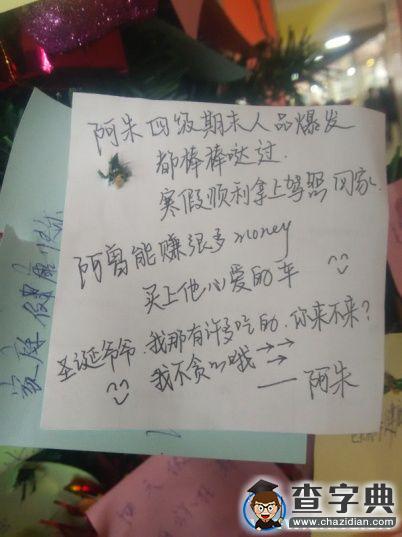 阿朱四级期末人品爆发
都棒棒哒过.
寒假顺利拿上驾照回家.
阿鲁能赚很多money
买上他心爱的车
圣诞爷爷.我那有许多吃的.你来不来?
我不贪心哦→→
→
——阿朱
健康快乐
查字典
www.chazidian.com